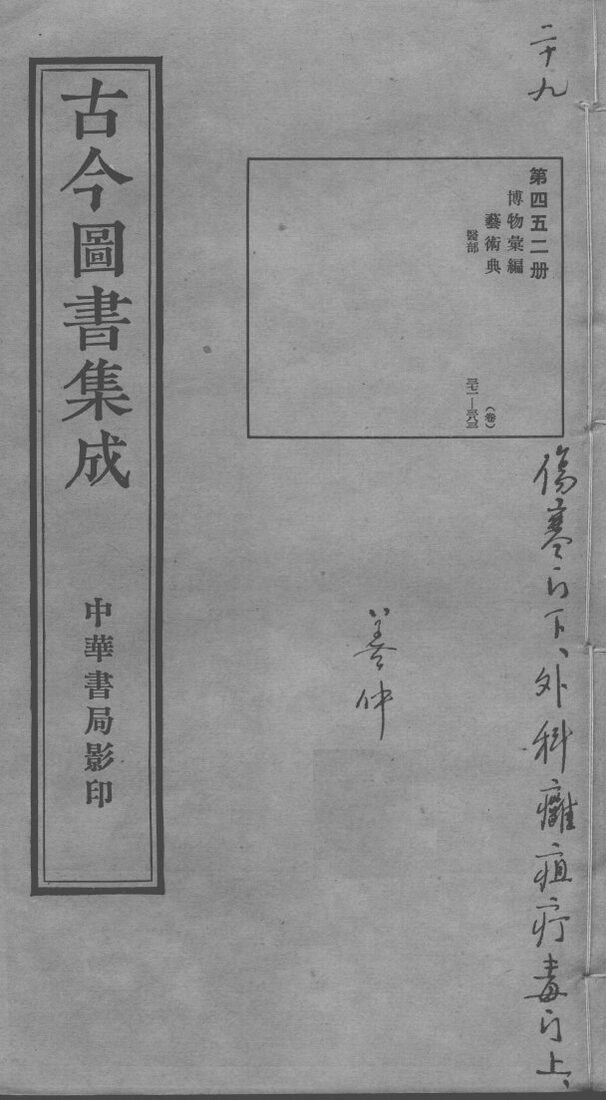 二十九
傷寒门下、外科癰疽疔毒门上、
第四五二册
博物彙編
藝術典
(卷)
醫部
三七一—三八三
古今圖書集成
中華書局影印